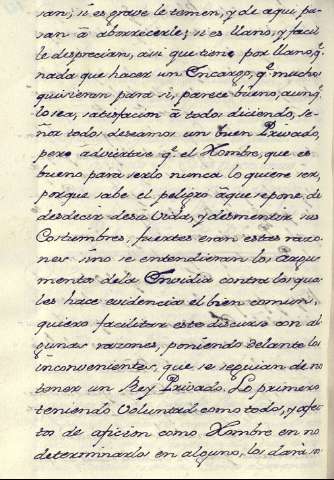 san; si es grave le temen, y de aqui pa-
san à aborrecerle; si es llano, y facil
le desprecian, asi que tiene por llano, q.
nada que hacer un Encargo, q. muchos
quisieran para si, parece bueno, aunq.
lo sea, satisfacion à todos diciendo, se-
ñor todos deseamos un buen Privado,
pero adviertase q. el Hombre, que es
bueno para serlo nunca lo quiere ser,
porque sabe el peligro àque se pone, de
desdecir desu Vida, y desmentir sus
Costumbres, fuertes eran estas razo-
nes sino se entendieran los argu-
mentos dela Envidia contra los qua-
les hace evidencia el bien comun,
quiero facilitar este discurso con al-
gunas razones, poniendo delante los
inconvenientes, que se seguian de no
tener un Rey Privado. Lo primero
teniendo Voluntad como todos, y afec-
tos de aficion como Hombre en no
determinarlos en alguno, los darà